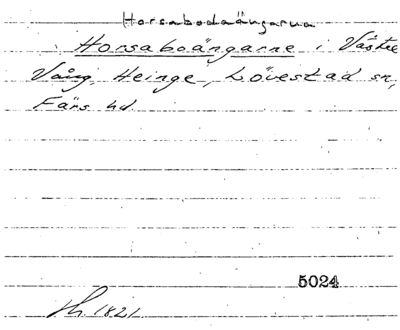 Horsabodaängarna
Horsaboängarne i Västre
Vång, Heinge, Lövestad sn,
Färs hd
5024
1821